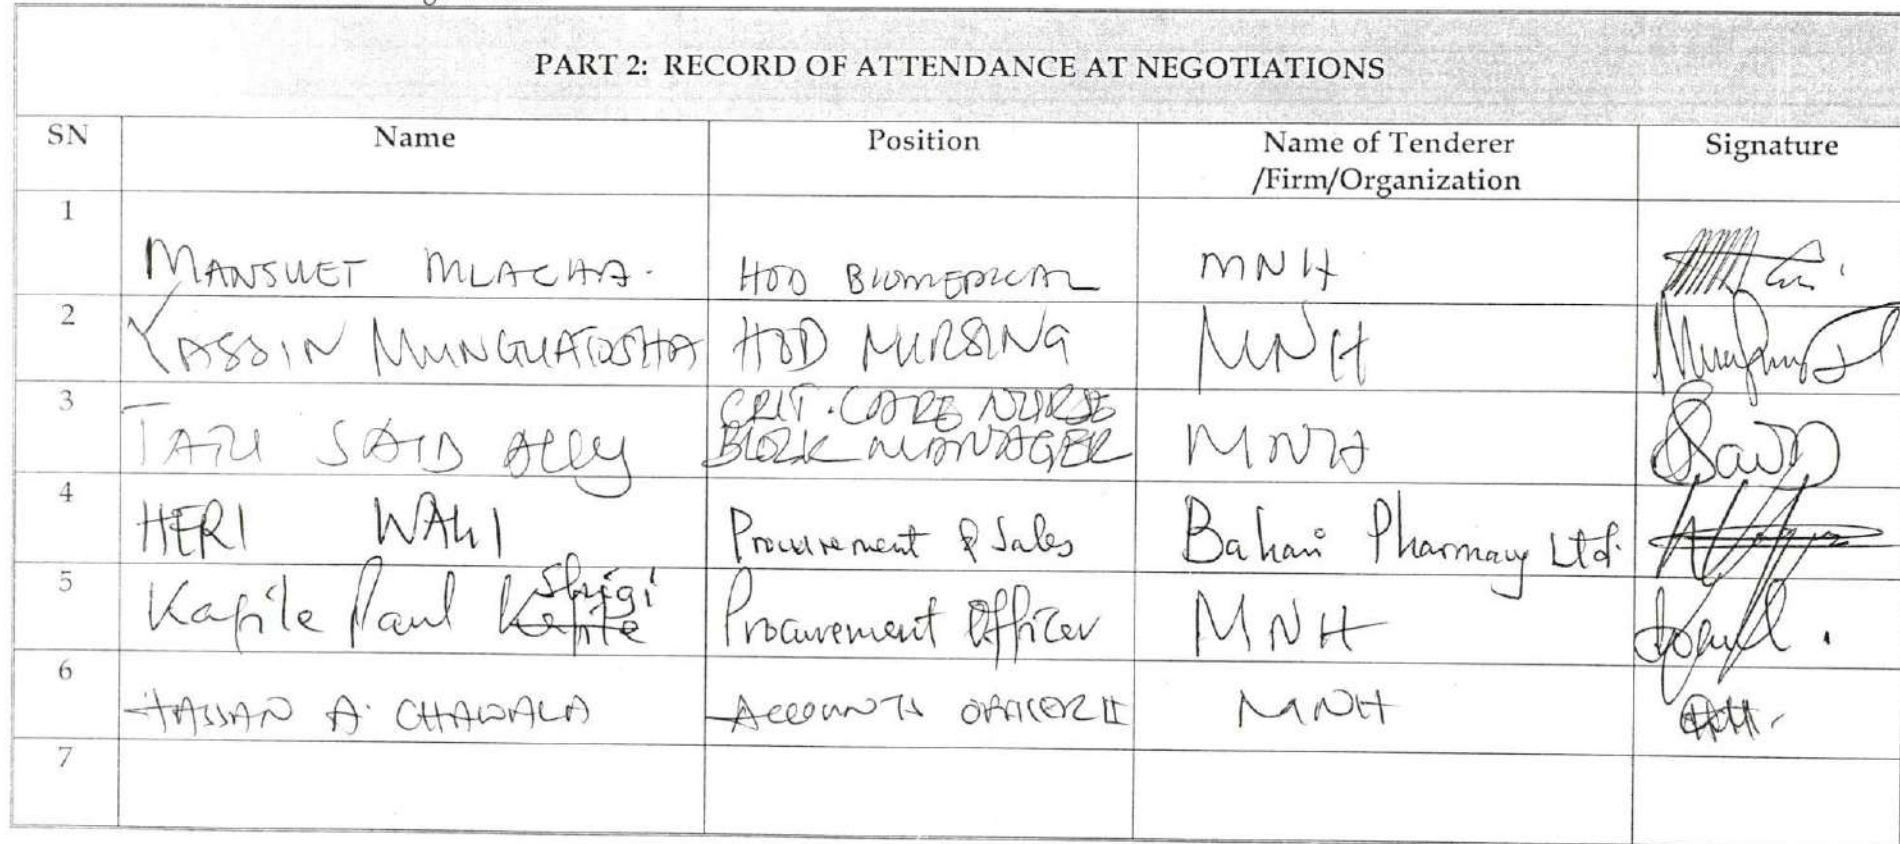 PART 2: RECORD OF ATTENDANCE AT NEGOTIATIONS
SN Name Position Name of Tenderer /Firm/Organization Signature
1 MANSUET MLACHA. HOD BIOMEDICAL MNH
2 YASSIN MUNGUATOSHA HOD NURSING MNH
3 TATU SAID ALLY CRIT. CARE NURSE BLOCK MANAGER MNH
4 HERI WALI Procurement & Sales Bahari Pharmacy Ltd.
5 Kapile Paul Shigi Procurement Officer MNH
6 HASSAN A. CHAWALA ACCOUNTS OFFICER II MNH
7